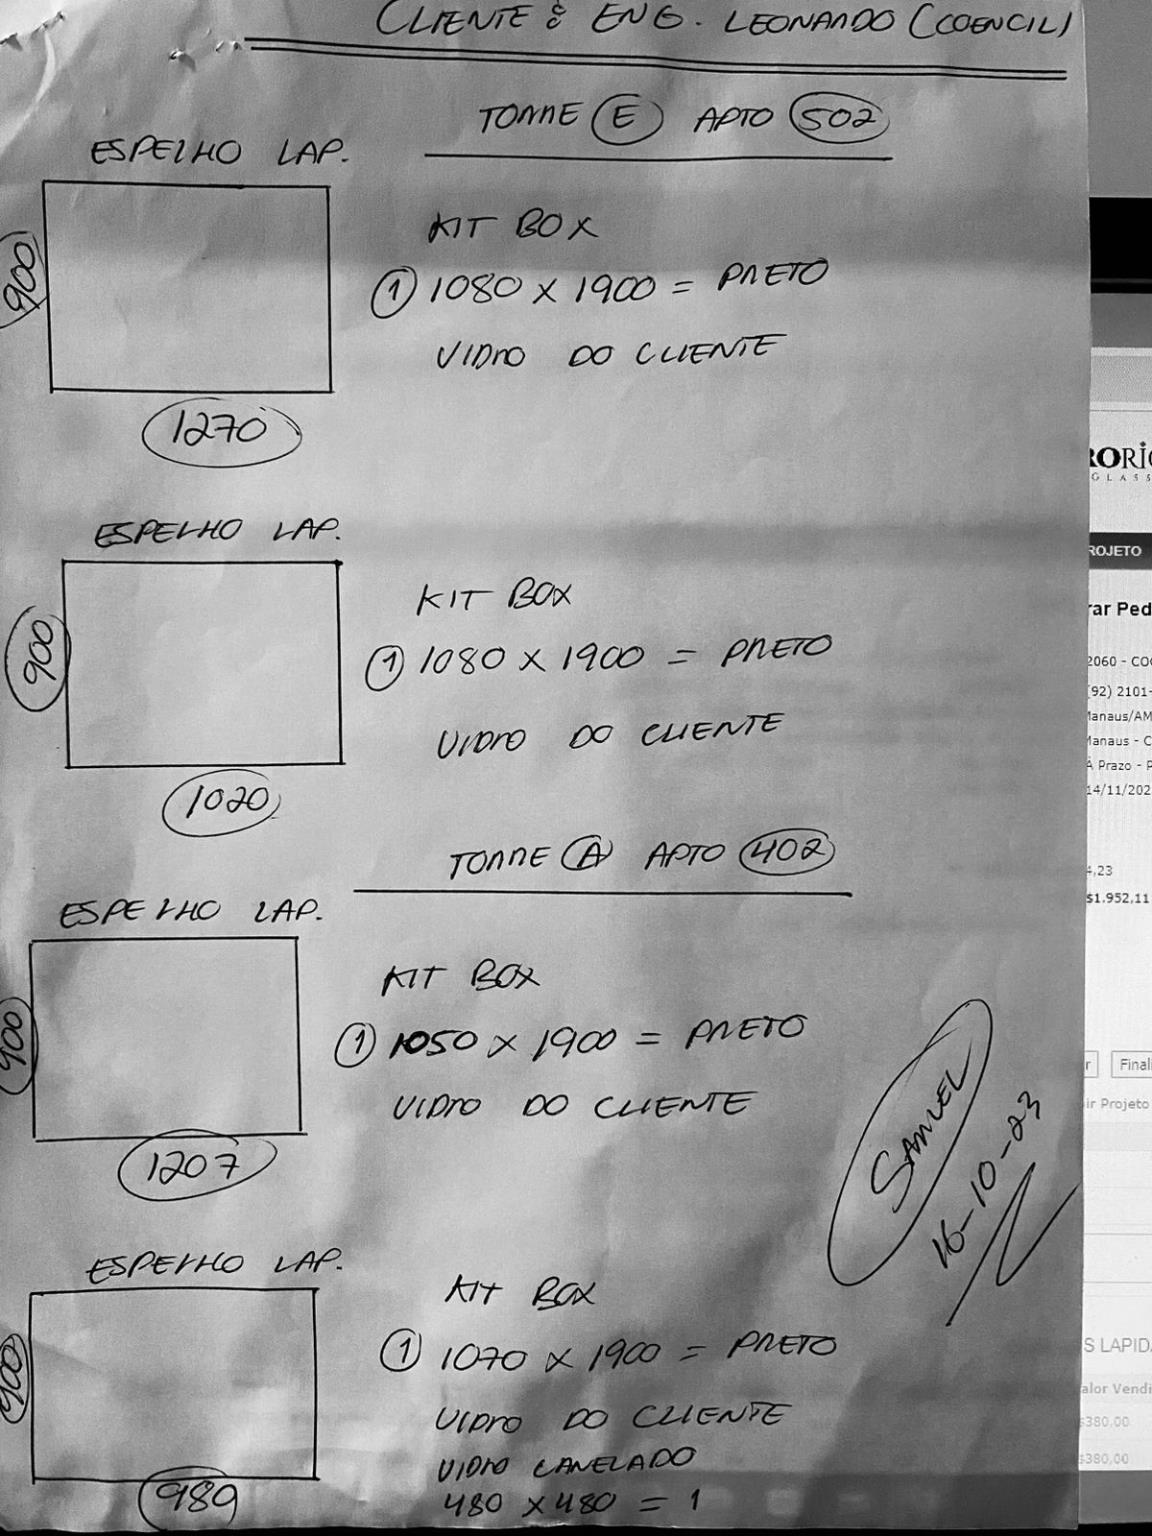 CLIENTE : ENG. LEONARDO (COENCIL)
TORRE E APTO 502
ESPELHO LAP.
900
1270
KIT BOX
1 1080 x 1900 = PRETO
VIDRO DO CLIENTE
ESPELHO LAP.
900
1020
KIT BOX
1 1080 x 1900 = PRETO
VIDRO DO CLIENTE
TORRE A APTO 402
ESPELHO LAP.
900
1207
KIT BOX
1 1050 x 1900 = PRETO
VIDRO DO CLIENTE
ESPELHO LAP.
900
980
KIT BOX
1 1070 x 1900 = PRETO
VIDRO DO CLIENTE
VIDRO CANELADO
480 x 480 = 1
SAMUEL
16-10-23
RORIC
GLASS
ROJETO
rar Ped
2060 - CO
(92) 2101-
Manaus/AM
Manaus - C
À Prazo - P
14/11/202
4,23
$1.952,11
r
Finali
ir Projeto
S LAPIDA
alor Vendi
$380,00
$380,00